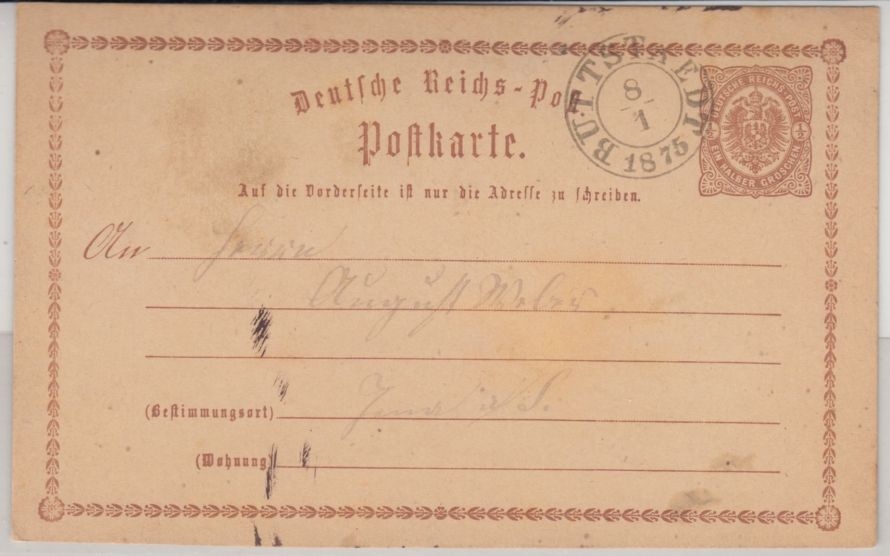 Deutsche Reichs-Post
Postkarte.
Auf die Vorderseite ist nur die Adresse zu schreiben.
BUTTSTAEDT
8/1
1875
DEUTSCHE REICHS-POST
½ ½
EIN HALBER GROSCHEN
An Herrn
August Weber
(Bestimmungsort) Jena
(Wohnung)